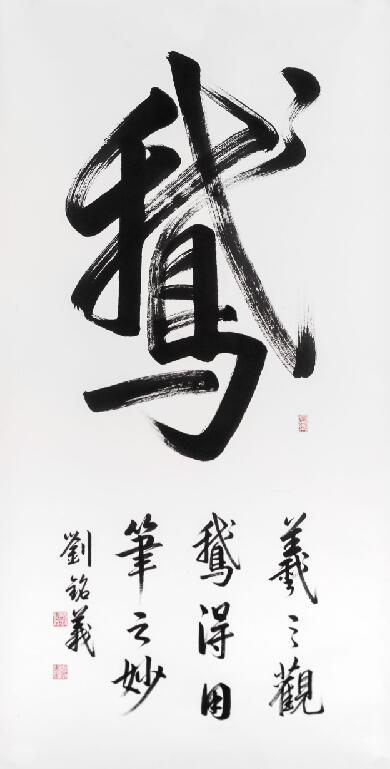 鵞
羲之觀
鵞得用
筆之妙
劉銘義